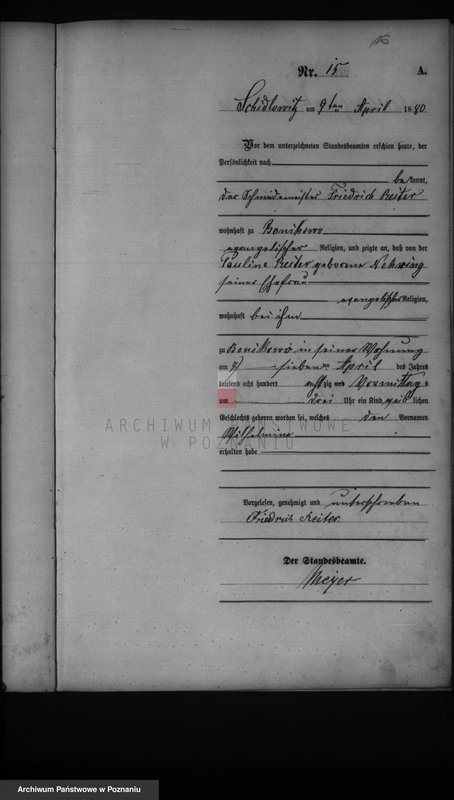 16
Nr. 15 A.
Schidlowitz am 9ten April 1880
Vor dem unterzeichneten Standesbeamten erschien heute, der
Persönlichkeit nach
bekannt,
der Schmiedemeister Friedrich Reiter
wohnhaft zu Bonikowo
evangelischer Religion, und zeigte an, daß von der
Pauline Reiter geborene Nehring
seiner Ehefrau
evangelischer Religion,
wohnhaft bei ihm
zu Bonikowo in seiner Wohnung
am sieben April des Jahres
tausend acht hundert achtzig und Vormittags
um drei Uhr ein Kind weiblichen
Geschlechts geboren worden sei, welches den Vornamen
Wilhelmine
erhalten habe
ARCHIWUM PAŃSTWOWE
W POZNANIU
Vorgelesen, genehmigt und unterschrieben
Friedrich Reiter.
Der Standesbeamte.
Meyer
Archiwum Państwowe w Poznaniu